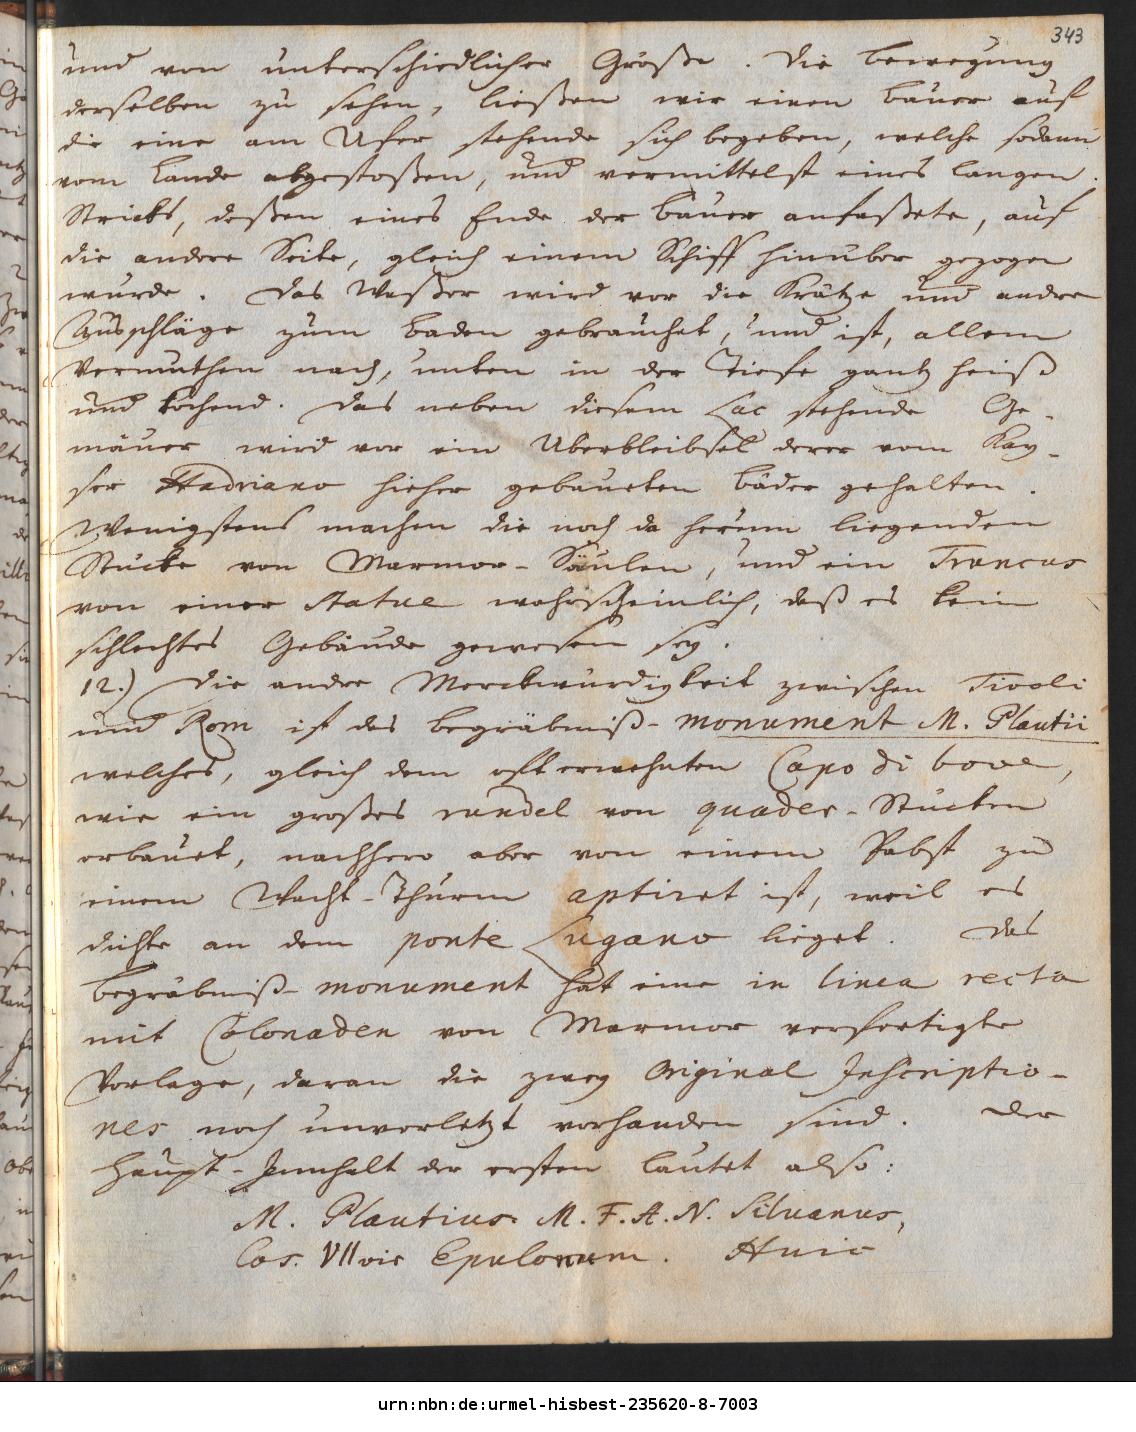 343
und von unterschiedlicher Größe. Die bewegung
derselben zu sehen, ließen wir einen bauer auf
die eine am Ufer stehende sich begeben, welche sodann
vom Lande abgestoßen, und vermittelst eines langen
Stricks, deßen eines Ende der bauer anfaßete, auf
die andere Seite, gleich einem Schiff hinuber gezogen
wurde. Das Waßer wird vor die Krätze und andre
Ausschläge zum baden gebrauchet, und ist, allem
Vermuthen nach, unten in der Tiefe gantz heiß
und kochend. Das neben diesem Lac stehende Ge-
mäuer wird vor ein Uberbleibsel derer vom Kay-
ser Hadriano hieher gebaueten bäder gehalten.
Wenigstens machen die noch da herum liegenden
Stücke von Marmor-Säulen, und ein Truncus
von einer Statue wahrscheinlich, daß es kein
schlechtes Gebäude gewesen sey.
12.) Die andre Merckwürdigkeit zwischen Tivoli
und Rom ist das begräbniß-monument M. Plautii
welches, gleich dem oft erwehnten Capo di bove,
wie ein großes rundel von quader-Stücken
erbauet, nachhero aber von einem Pabst zu
einem Wacht-Thurm aptiret ist, weil es
dichte an dem ponte Lugano lieget. Das
begräbniß-monument hat eine in linea recta
mit Colonaden von Marmor verfertigte
Vorlage, daran die zwey Original Inscriptio-
nes noch unverletzt vorhanden sind. Der
Haupt-Innhalt der ersten lautet also:
M. Plautius. M. F. A. N. Silvanus,
Cos. VIIvir Epulonum. Huic
urn:nbn:de:urmel-hisbest-235620-8-7003